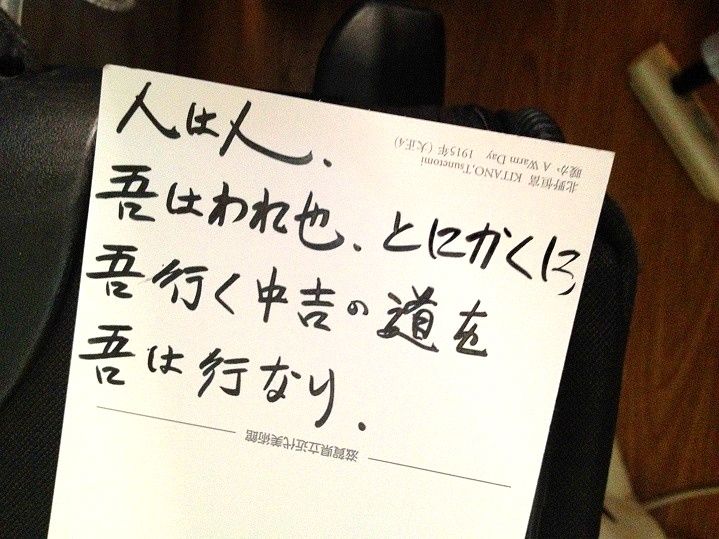 人は人、
吾はわれ也、とにかくに
吾行く中吉の道を
吾は行なり．
北野恒富 KITANO,Tsunetomi
暖か A Warm Day 1915年 (大正4)
滋賀県立近代美術館